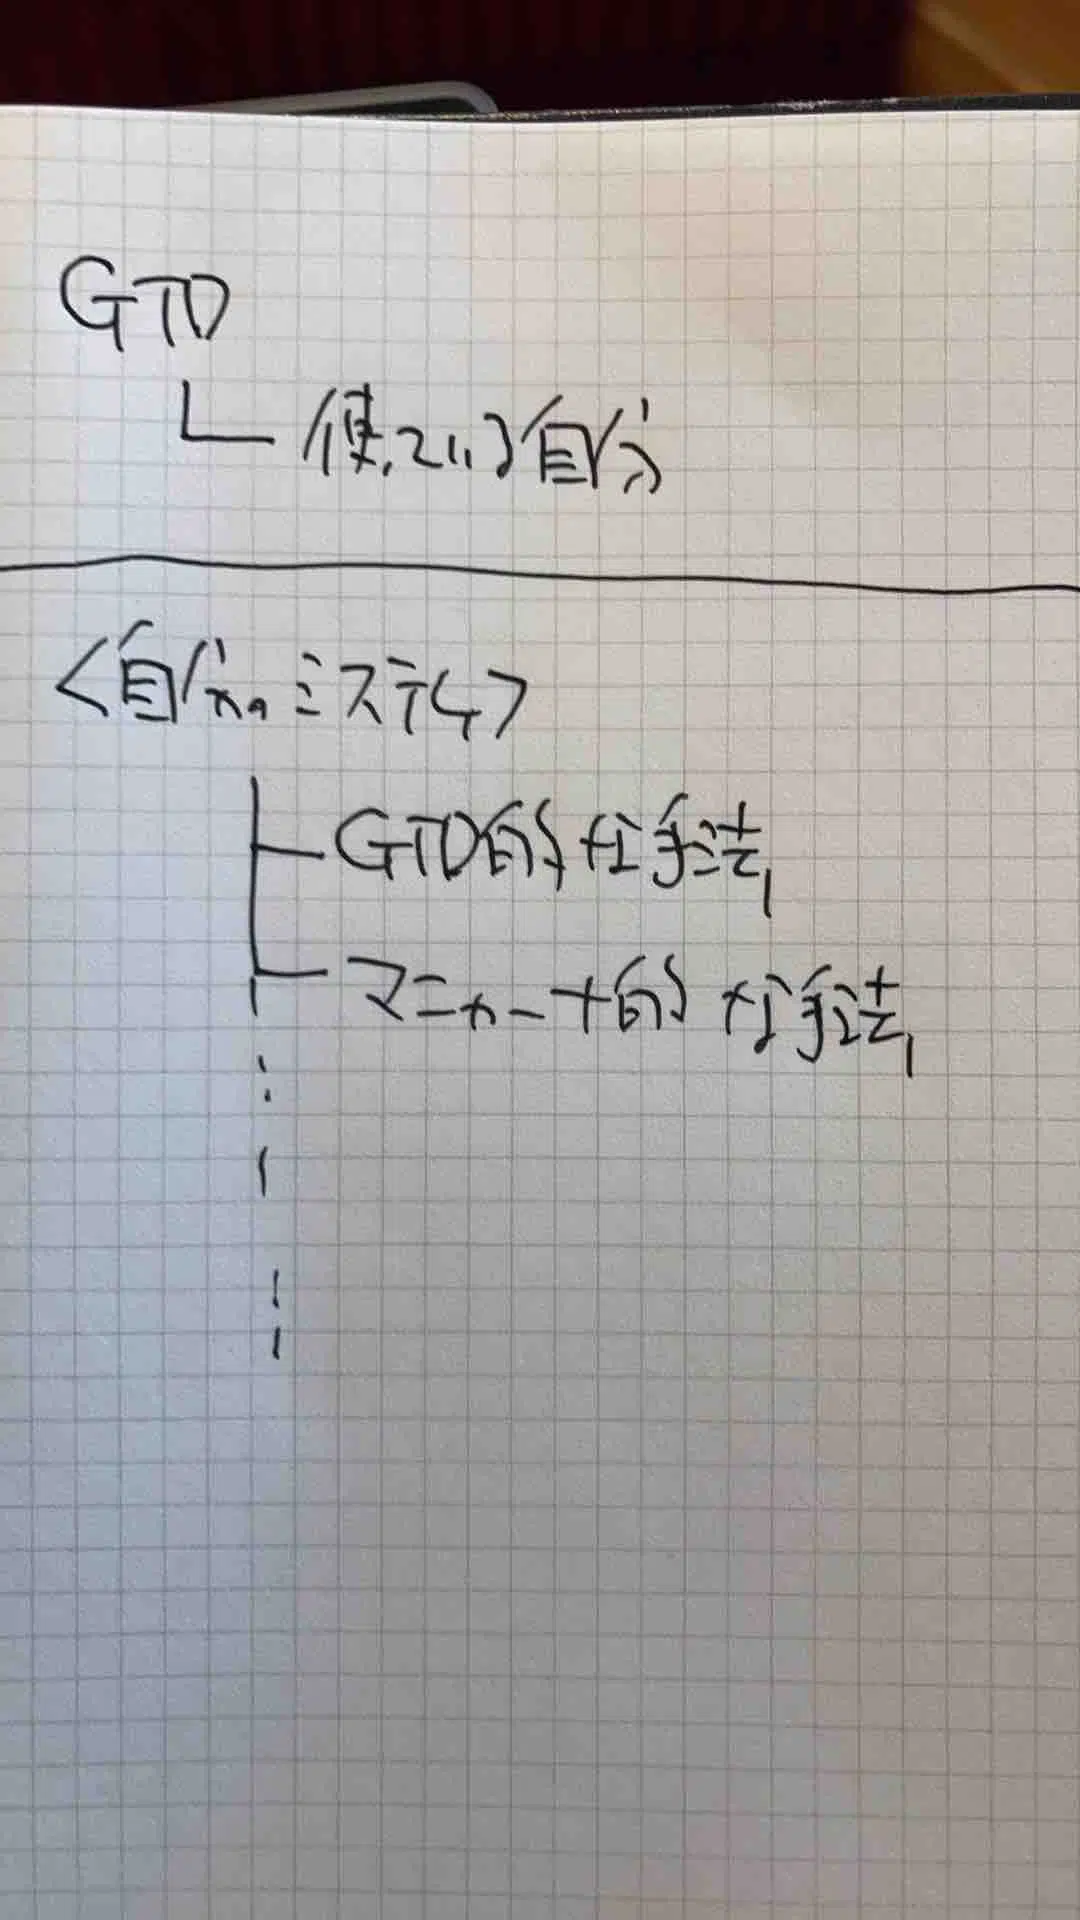 GTD
使っている自分
<自分のシステム>
GTD的な手法1
マニャーナ的な手法1